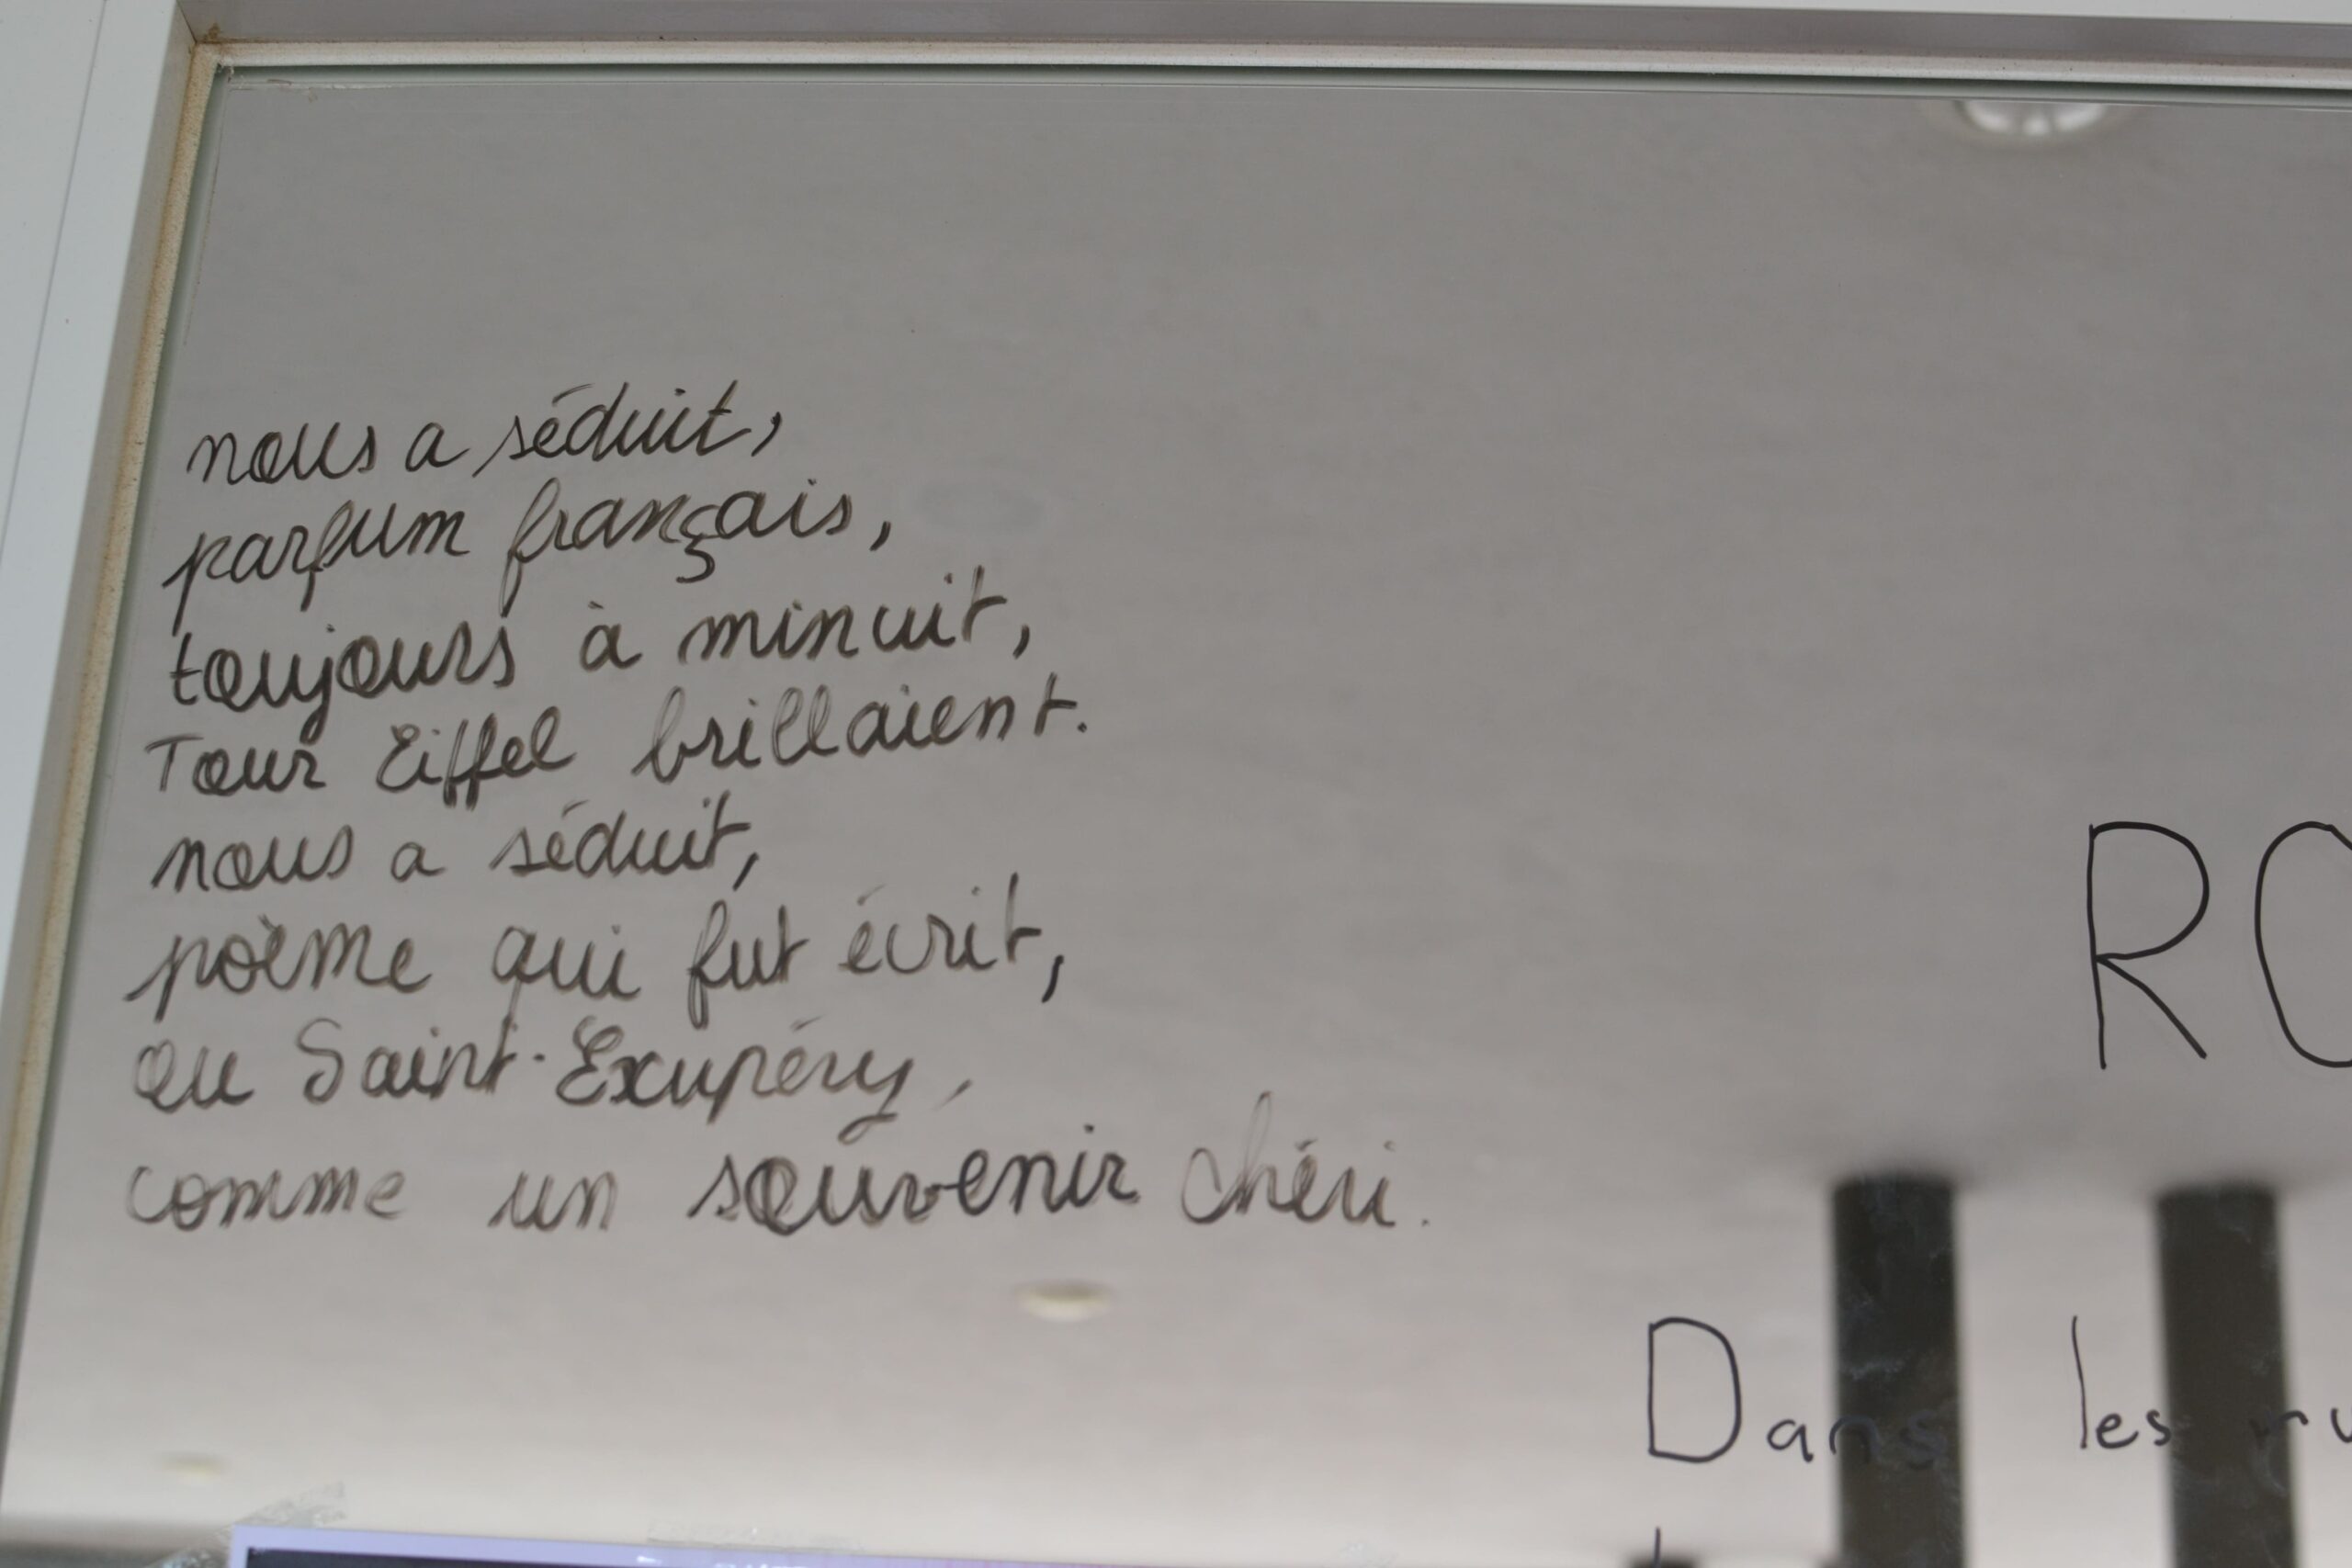 nous a séduit,
parfum français,
toujours à minuit,
Tour Eiffel brillaient.
nous a séduit,
poème qui fut écrit,
ou Saint-Exupéry,
comme un souvenir chéri.
RO
Dans les ru